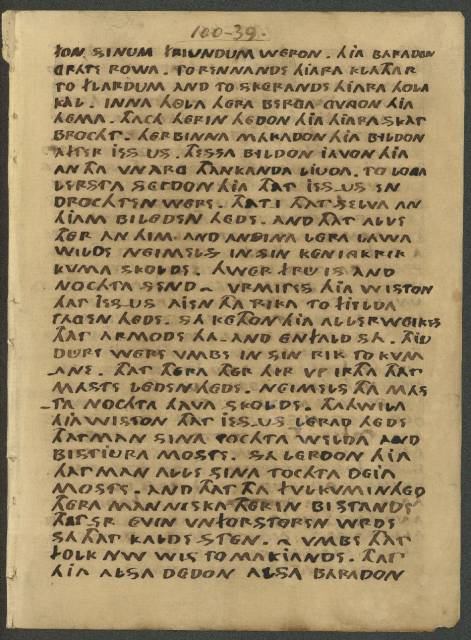 100-39.
FON SINUM FRIUNDUM WERON. HIA BARADON
GRATE ROWA. TO RENNANDE HIARA KLATHAR
TO FLARDUM AND TO SKERANDE HIARA HOLA
KAL. INNA HOLA THERA BERGA GVNGON HIA
HEMA. THACH HERIN HEDON HIA HIARA SKAT
BROCHT. HERBINNA MAKADON HIA BILDON
AFTER IES_US. THESSA BILDON IAVON HIA
AN THA VNARG THANKANDA LIUDA. TO LONGA
LERSTA SEIDON HIA THAT IES_US EN
DROCHTEN WERE. THAT I THAT SELVA AN
HIAM BILEDEN HEDE. AND THAT ALLE
THER AN HIM AND AN SINA LERA LAWA
WILDE NEIMELS IN SIN KENINGKRIK
KVMA SKOLDE. HWER FRU IS AND
NOCHTA SEND ~ VRMITES HIA WISTON
THAT IES_US AIEN THA RIKA TO FIELDA
TAGEN HEDE. SA KETHON HIA ALLERWEIKES
THAT ARMODE HA AND ENFALD SA THIU
DURE WERE VMBE IN SIN RIK TO KVM
_ANE. THAT THERA THER HIR VP IRTHA THAT
MASTE LEDEN HEDE. NEIMELS THA MAS
_TA NOCHTA HAVA SKOLDE. THAHWILA
HIA WISTON THAT IES_US LERAD HEDE
THAT MAN SINA TOCHTA WELDA AND
BISTIURA MOSTE. SA LERDON HIA
THAT MAN ALLE SINA TOCHTA DEIA
MOSTE. AND THAT THA FULKVMINHED
THERA MANNISKA THERIN BISTANDE
THAT ER EVEN VNFORSTOREN WRDE
SA THAT KALDE STEN. ~ VMBE THAT
FOLK NW WIS TO MAKIANDE. THAT
HIA ALSA DEDON ALSA BARADON